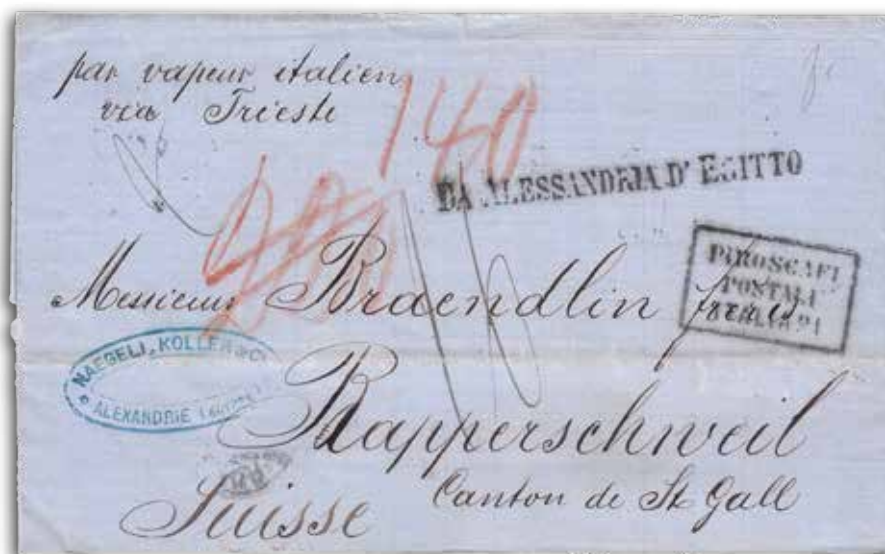 par vapeur italien
via Trieste
140
DA ALESSANDRIA D' EGITTO
PIROSCAFI
POSTALI
ITALIANI
Messieurs Braendlin frères
NAEGELI, KOLLER & Co
ALEXANDRIE
Rapperschweil
Canton de St Gall
Suisse